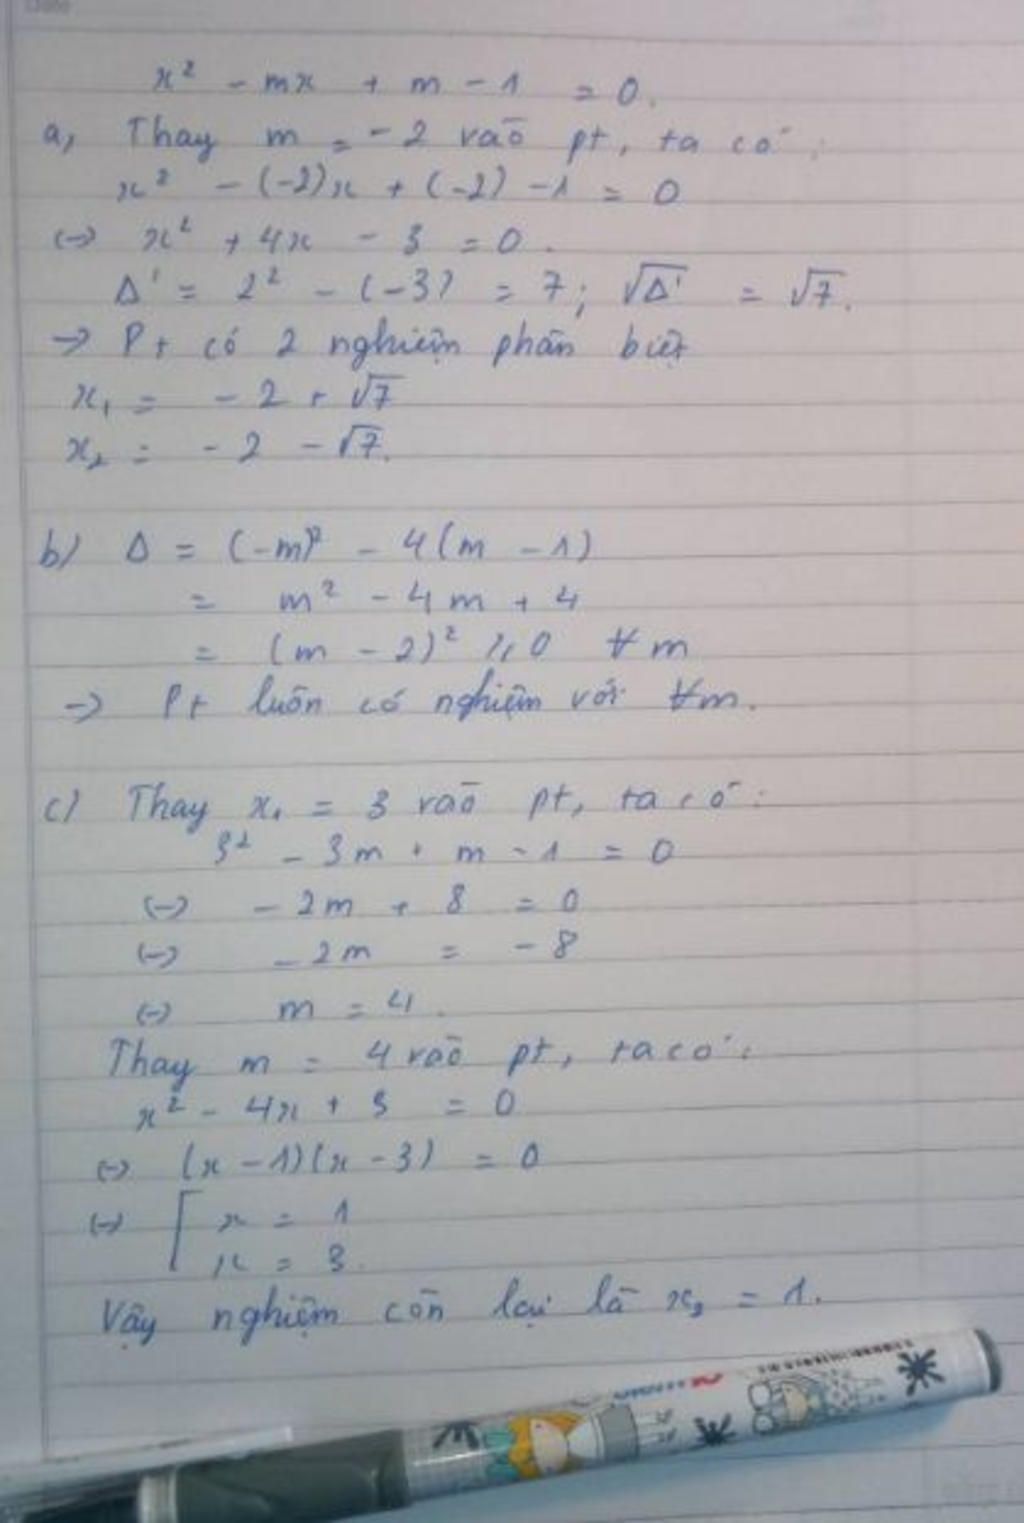 x² - mx + m - 1 = 0.
a, Thay m = -2 vào pt, ta có:
x² - (-2)x + (-2) - 1 = 0
(-) x² + 4x - 3 = 0.
Δ' = 2² - (-3) = 7; √Δ' = √7.
→ Pt có 2 nghiệm phân biệt
x₁ = - 2 + √7
x₂ = - 2 - √7.
b) Δ = (-m)² - 4(m - 1)
= m² - 4m + 4
= (m - 2)² ≥ 0 ∀m
→ Pt luôn có nghiệm với ∀m.
c) Thay x₁ = 3 vào pt, ta có:
3² - 3m + m - 1 = 0
(-) - 2m + 8 = 0
(-) - 2m = - 8
(-) m = 4.
Thay m = 4 vào pt, ta có:
x² - 4x + 3 = 0
(-) (x - 1)(x - 3) = 0
(-) [ x = 1
x = 3.
Vậy nghiệm còn lại là x₂ = 1.